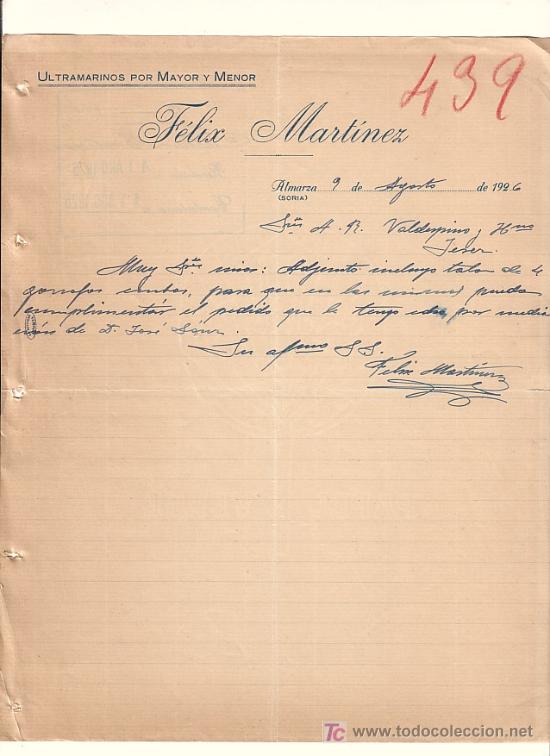 ULTRAMARINOS POR MAYOR Y MENOR
439
Félix Martínez
Almarza 9 de Agosto de 1926
(SORIA)
Sres A. R. Valdespino y Hno
Jerez
Muy Sres mios: Adjunto incluyo talon de 4
garrafas, para que en las mismas puedan
cumplimentar el pedido que le tengo por medi
de D. José
Su affmo SS.
Felix Martinez
TC www.todocoleccion.net